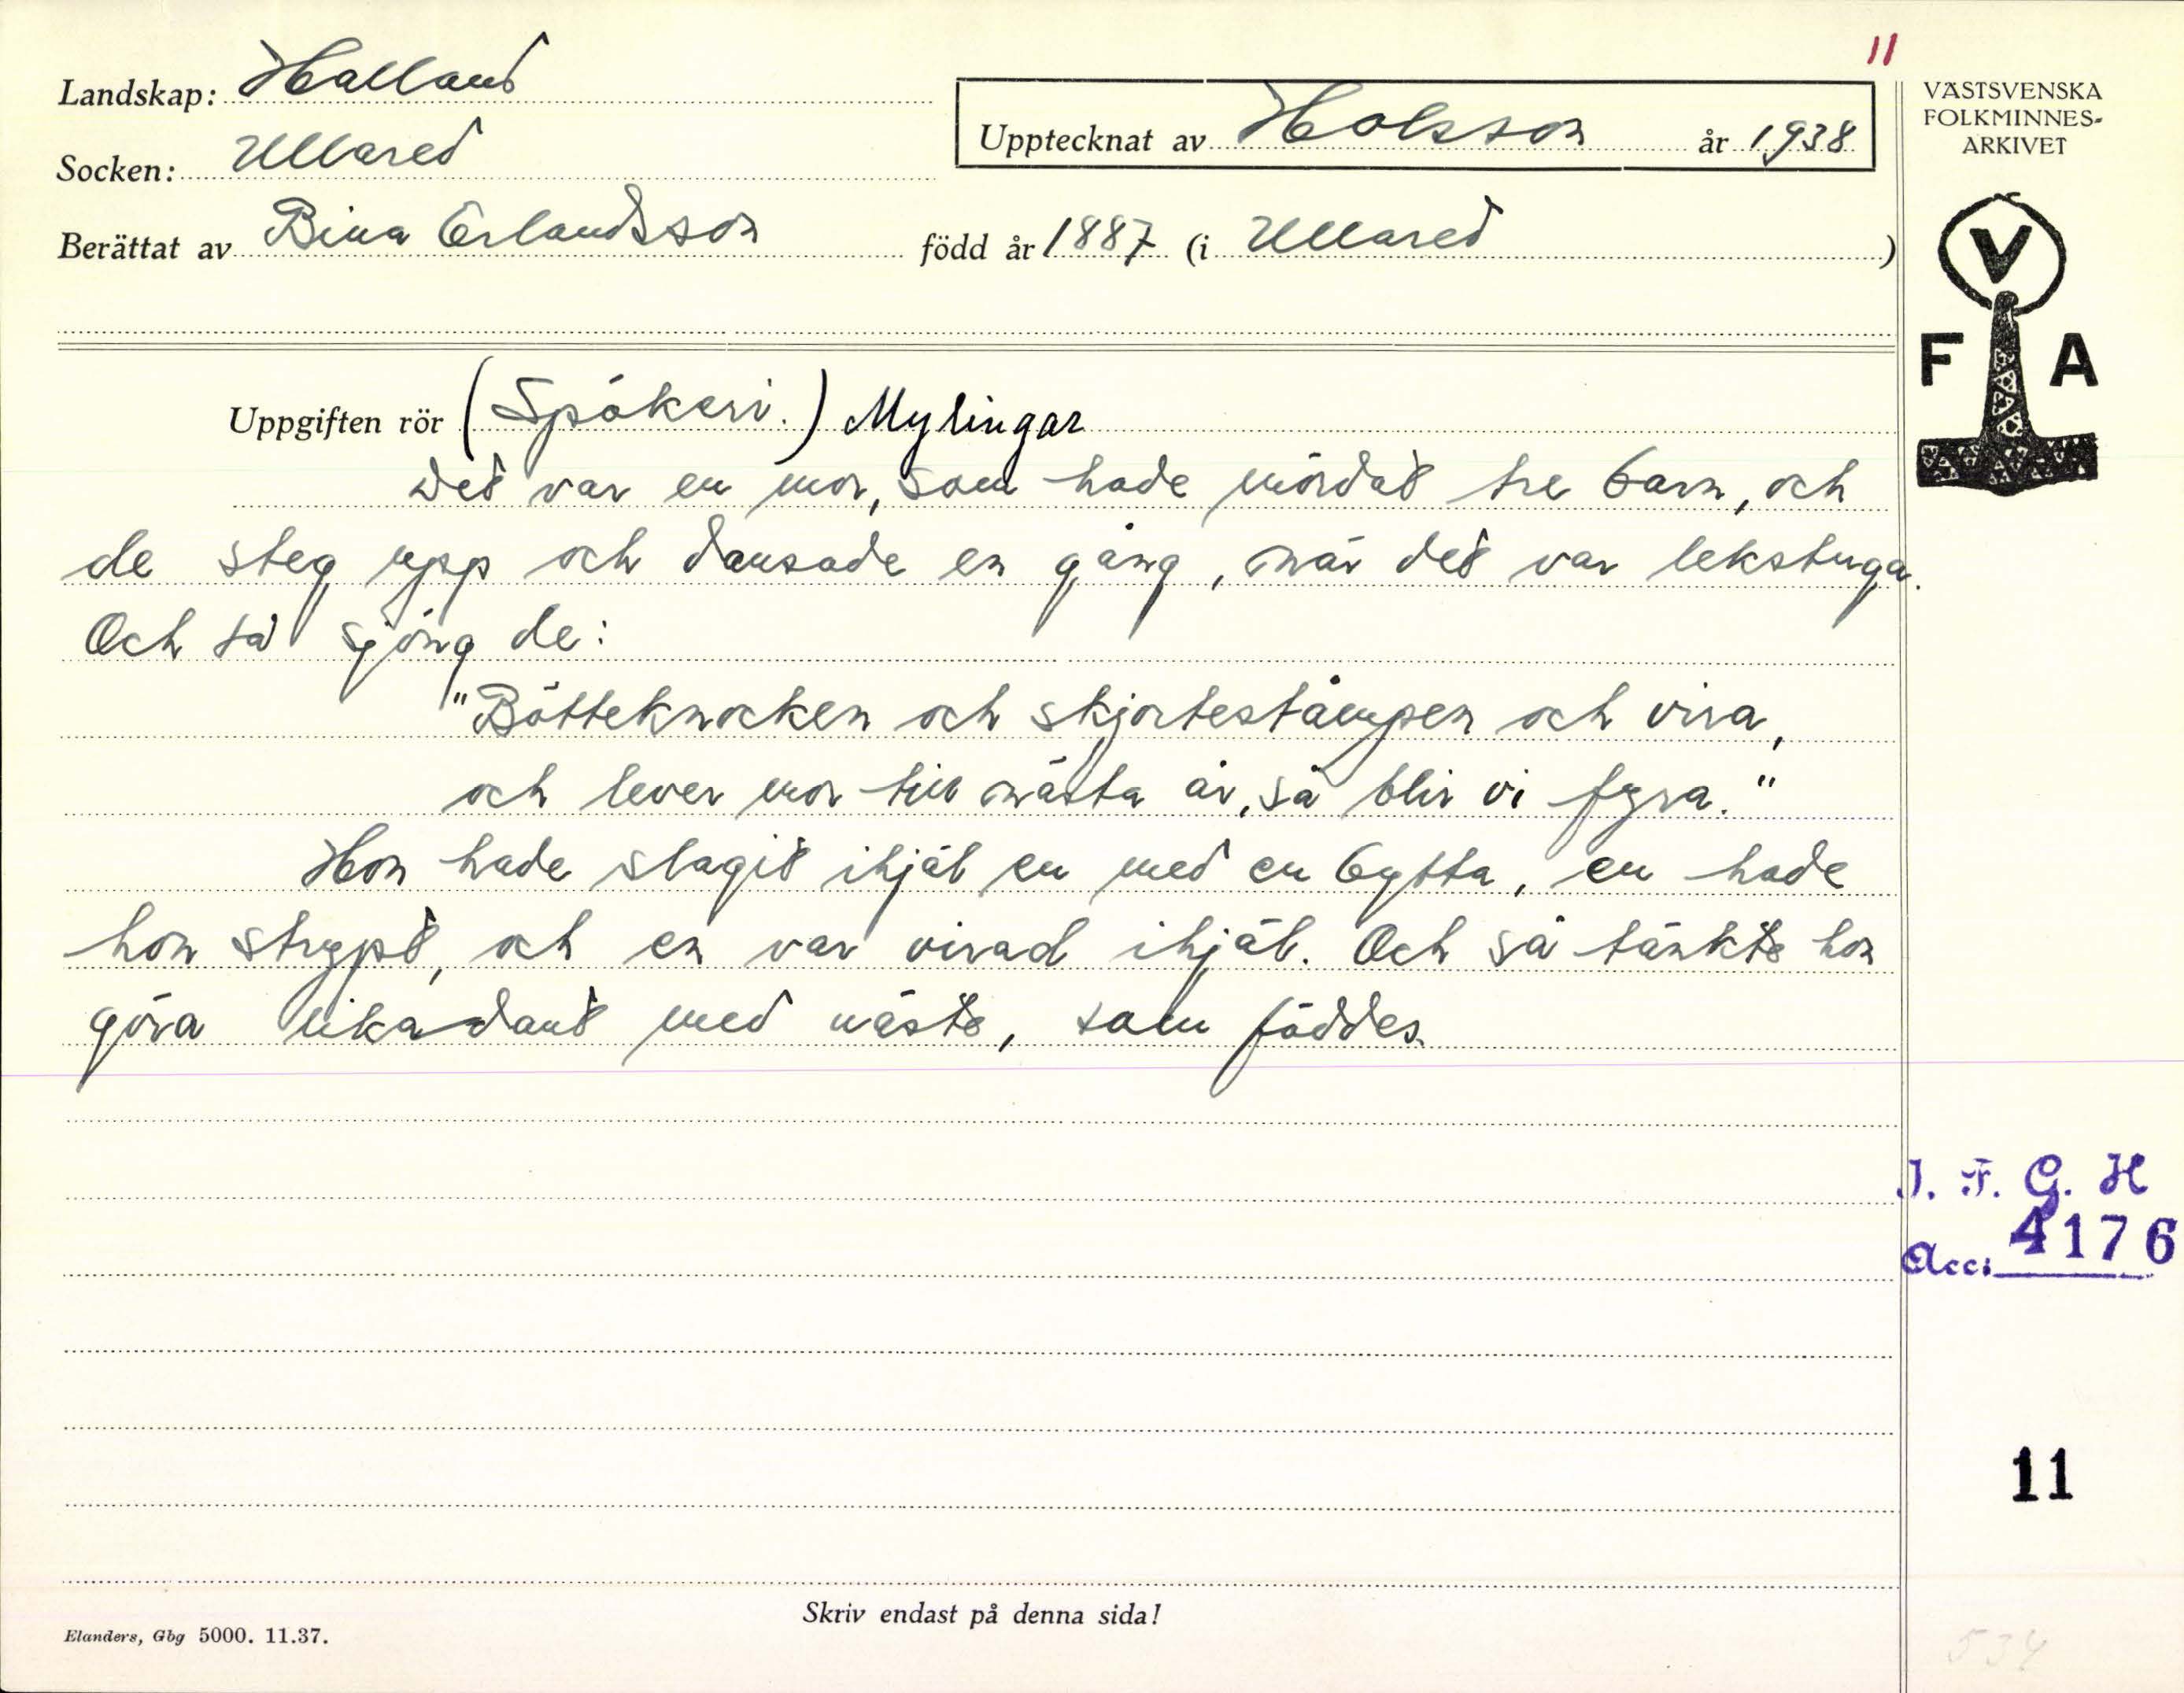 11
Landskap: Halland
Socken: Ullared
Upptecknat av Holsson år 1938
Berättat av Bina Erlandsson född år 1887 (i Ullared)
VÄSTSVENSKA
FOLKMINNES-
ARKIVET
V
F A
Uppgiften rör (Spökeri.) Mylingar
Det var en mor, som hade mördat tre barn, och
de steg upp och dansade en gång, när det var lekstuga.
Och så sjöng de:
"Bötteknocken och skjortestämpen och vira,
och lever mor till nästa år, så blir vi fyra."
Hon hade slagit ihjäl en med en bytta, en hade
hon strypt, och en var virad ihjäl. Och så tänkte hon
göra likadant med näste, som föddes.
I. F. G. H
Acc: 4176
11
Skriv endast på denna sida!
Elanders, Gbg 5000. 11.37.
534